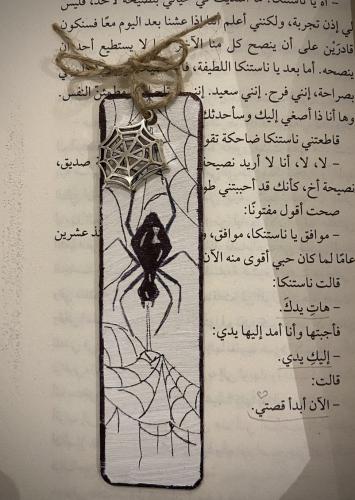 لي إذن تجربة، ولكنني أعلم أننا إذا عشنا بعد اليوم معًا فسنكون
قادرَيْن على أن ينصح كل منا الآخر لا يستطيع أحد أن
ينصحه. أما بعد يا ناستنكا اللطيفة،
بصراحة، إنني فرح. إنني سعيد. إنني النفس.
وها أنا ذا أصغي إليك وسأحدثك
قاطعتني ناستنكا ضاحكة تقو
– لا، لا، أنا لا أريد نصيحة صديق،
نصيحة أخ، كأنك قد أحببتني طو
صحت أقول مفتونًا:
– موافق يا ناستنكا، موافق، و عشرين
عامًا لما كان حبي أقوى منه الآن
قالت ناستنكا:
– هاتِ يدكَ.
فأجبتها وأنا أمد إليها يدي:
– إليكِ يدي.
قالت:
– الآن أبدأ قصتي.